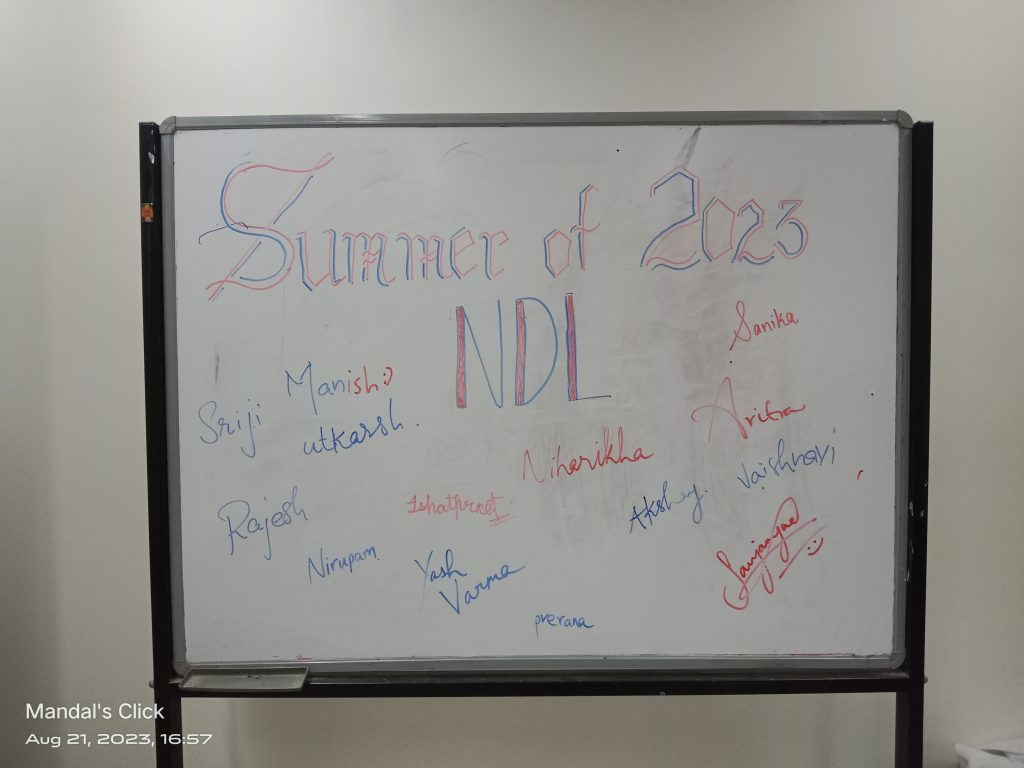 Summer of 2023
NDL
Sanika
Manish:)
Sriji
utkarsh.
Aritra
Niharikha
Vaishnavi
Rajesh
Ishatpreet
Akshay.
Nirupam.
Yash
Varma
prerana
Mandal's Click
Aug 21, 2023, 16:57